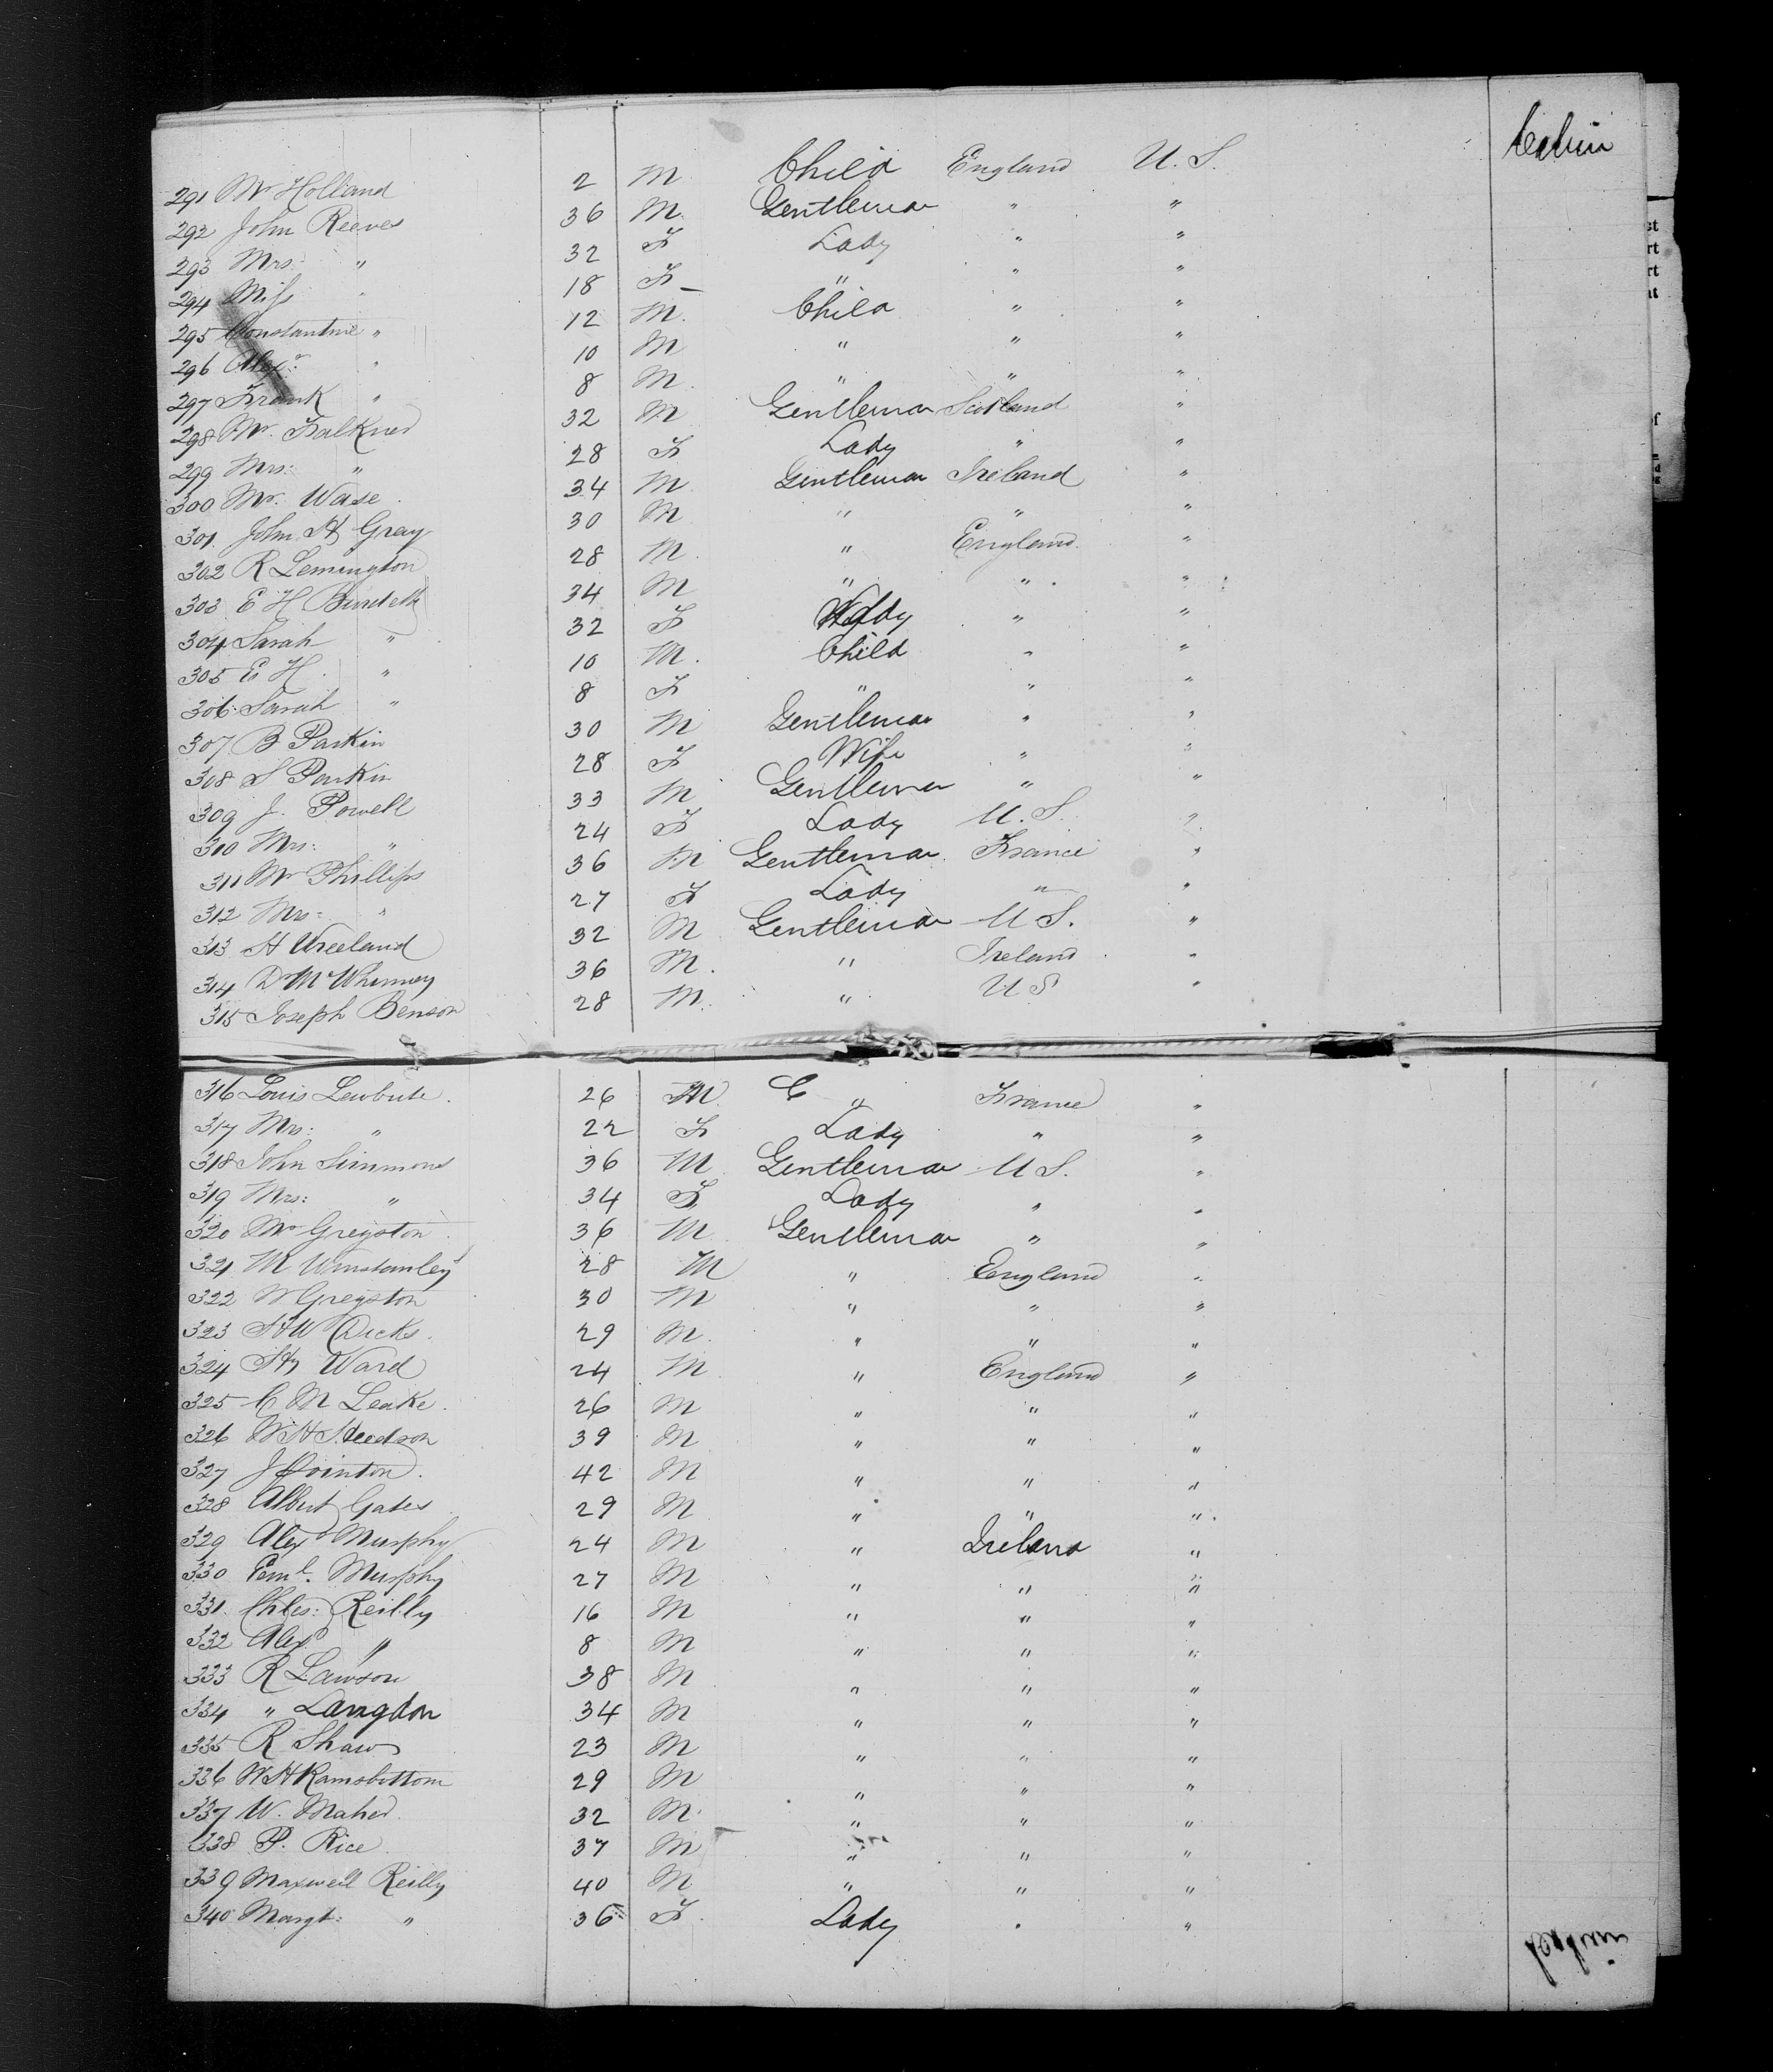 Cabin
291 Mr Holland 2 M Child England U.S.
292 John Reeves 36 M. Gentleman " "
293 Mrs: " 32 F Lady " "
294 Miss " 18 F " " "
295 Constantine " 12 M. Child " "
296 Alexr: " 10 M " " "
297 Frank " 8 M. " " "
298 Mr. Falkner 32 M Gentleman Scotland "
299 Mrs: " 28 F Lady " "
300 Mr. Wase 34 M Gentleman Ireland "
301 John H Gray 30 M " " "
302 R Lemington 28 M. " England "
303 E H Burdett 34 M " " "
304 Sarah " 32 F " "
305 E H. " 10 M. Child " "
306 Sarah " 8 F " " "
307 B Parkin 30 M Gentleman " "
308 S Parkin 28 F Wife " "
309 J. Powell 33 M Gentleman " "
310 Mrs: " 24 F Lady U.S. "
311 Mr Phillips 36 M Gentleman France "
312 Mrs: " 27 F Lady " "
313 H Vreeland 32 M Gentleman U S. "
314 D McWhinney 36 M. " Ireland "
315 Joseph Benson 28 M. " U S "
316 Louis 26 M. " France "
317 Mrs: " 22 F Lady " "
318 John Simmons 36 M Gentleman U S. "
319 Mrs: " 34 F Lady " "
320 Mr Greyston 36 M Gentleman " "
321 M Winstanley 28 M " England "
322 W Greyston 30 M " " "
323 H W Dicks 29 M. " " "
324 Hy Ward 24 M " England "
325 C M Leake 26 M " " "
326 W H Hudson 39 M " " "
327 J Pointon 42 M " " "
328 Albert Gates 29 M " " "
329 Alex Murphy 24 M " Ireland "
330 Murphy 27 M " " "
331 Chles: Reilly 16 M " " "
332 Alex " 8 M " " "
333 R Lawson 38 M " " "
334 " Langdon 34 M " " "
335 R Shaw 23 M " " "
336 W H Ramsbottom 29 M " " "
337 W. Maher 32 M " " "
338 P. Rice 37 M " " "
339 Maxwell Reilly 40 M " " "
340 Margt: " 36 F. Lady " "
Cabin